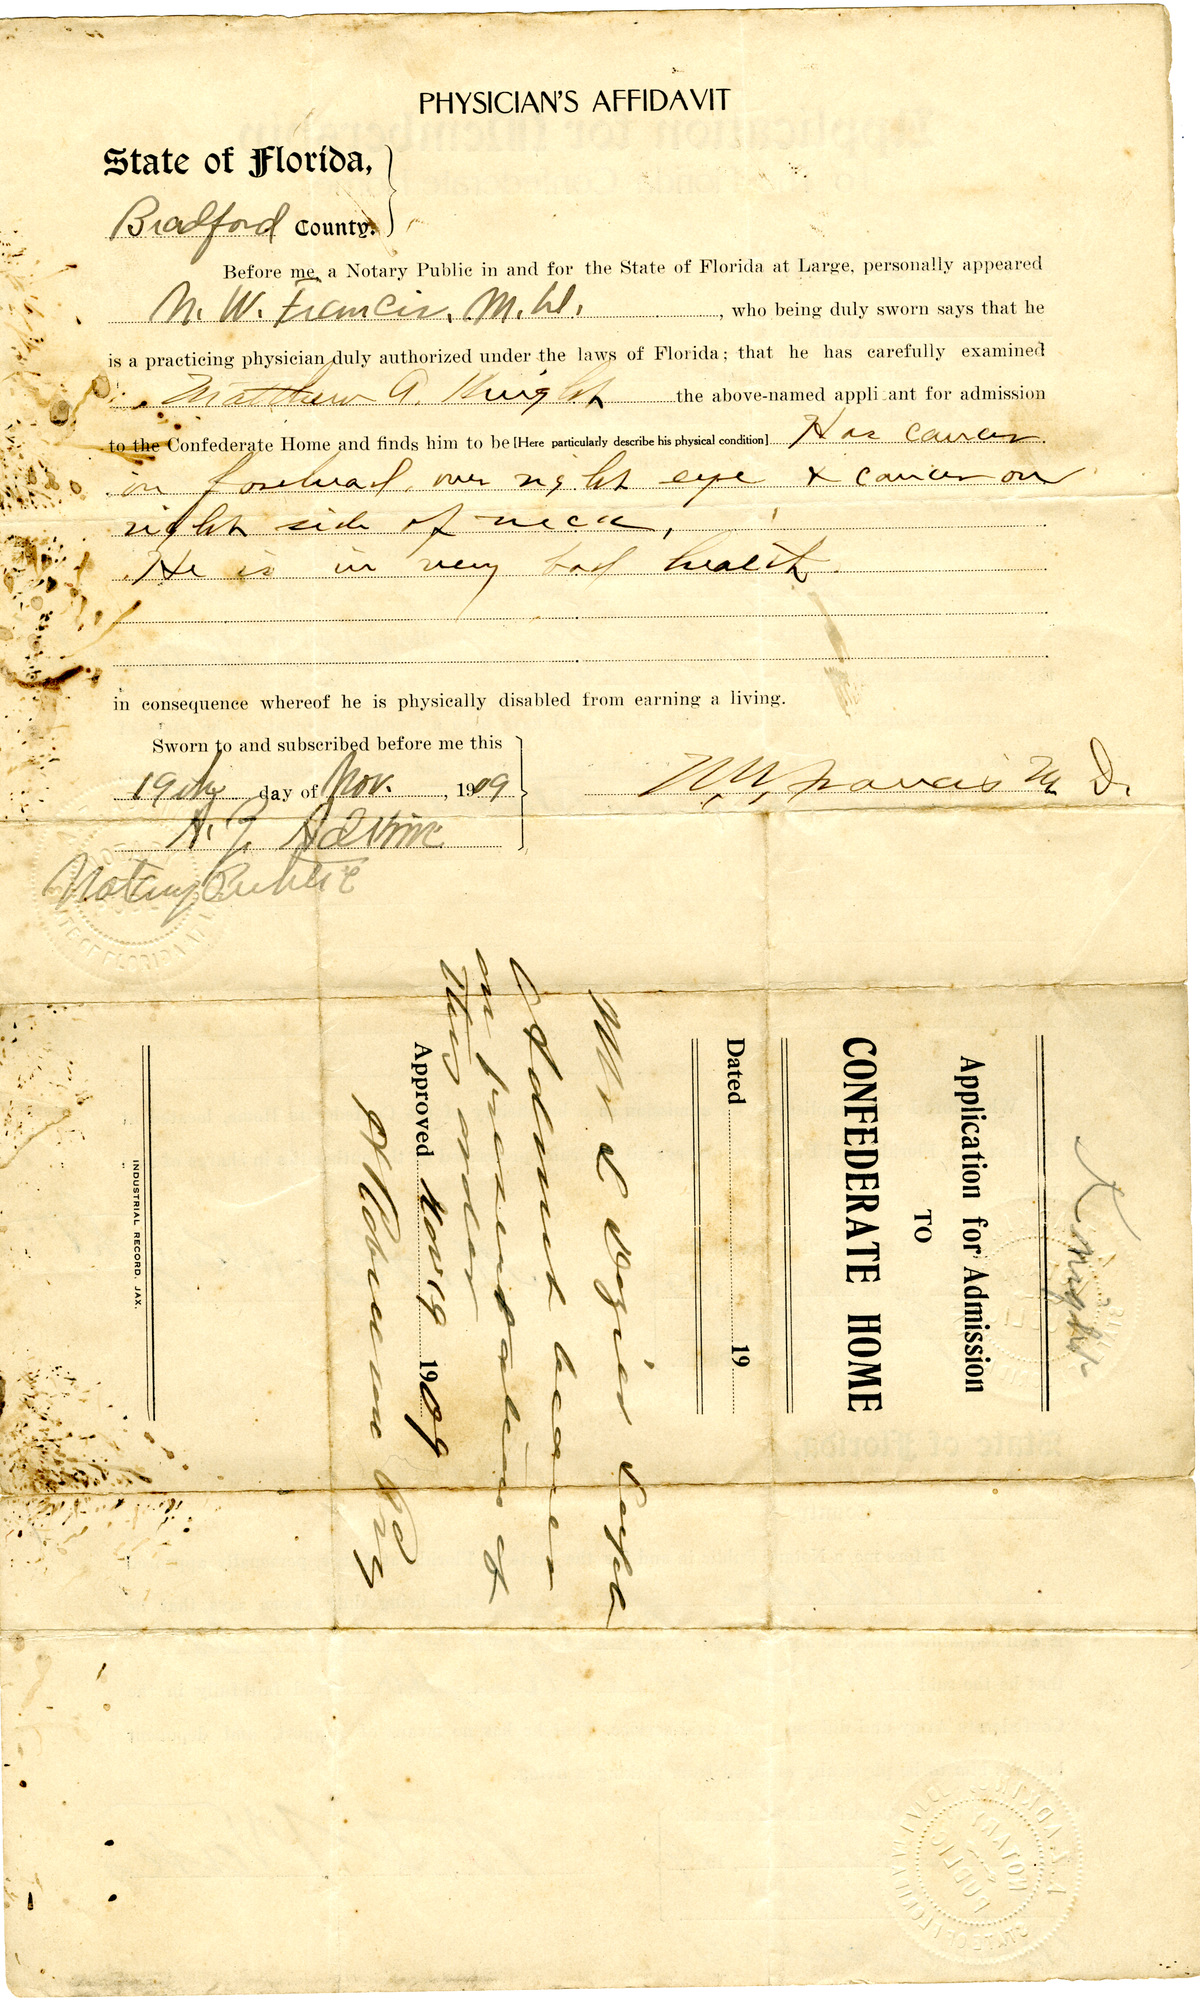 PHYSICIAN'S AFFIDAVIT
State of Florida,
Bradford County.
Before me, a Notary Public in and for the State of Florida at Large, personally appeared
N. W. Francis, M.D. , who being duly sworn says that he
is a practicing physician duly authorized under the laws of Florida; that he has carefully examined
Matthew A. Knight the above-named applicant for admission
to the Confederate Home and finds him to be [Here particularly describe his physical condition] Has cancer
on forehead, over right eye & cancer on
right side of neck,
He is in very bad health.
in consequence whereof he is physically disabled from earning a living.
Sworn to and subscribed before me this
19th day of Nov. , 1909
A. Z. Adkins
Notary Public
N. W. Francis M. D.
Knight
Application for Admission
TO
CONFEDERATE HOME
Dated 19
Mr Dozier Supt
Admit bearer
on presentation of
this order
Approved Nov 19 1909
Pres
INDUSTRIAL RECORD, JAX.
A. Z. ADKINS
NOTARY
PUBLIC